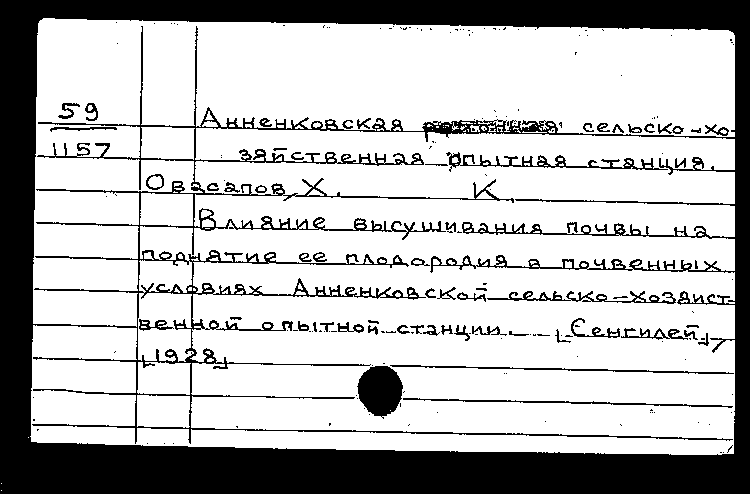 59
1157
Анненковская сельско-хо-
зяйственная опытная станция.
Овасапов, Х. К.
Влияние высушивания почвы на
поднятие ее плодородия в почвенных
условиях Анненковской сельско-хозяист-
венной опытной станции. [Сенгилей],
[1928]